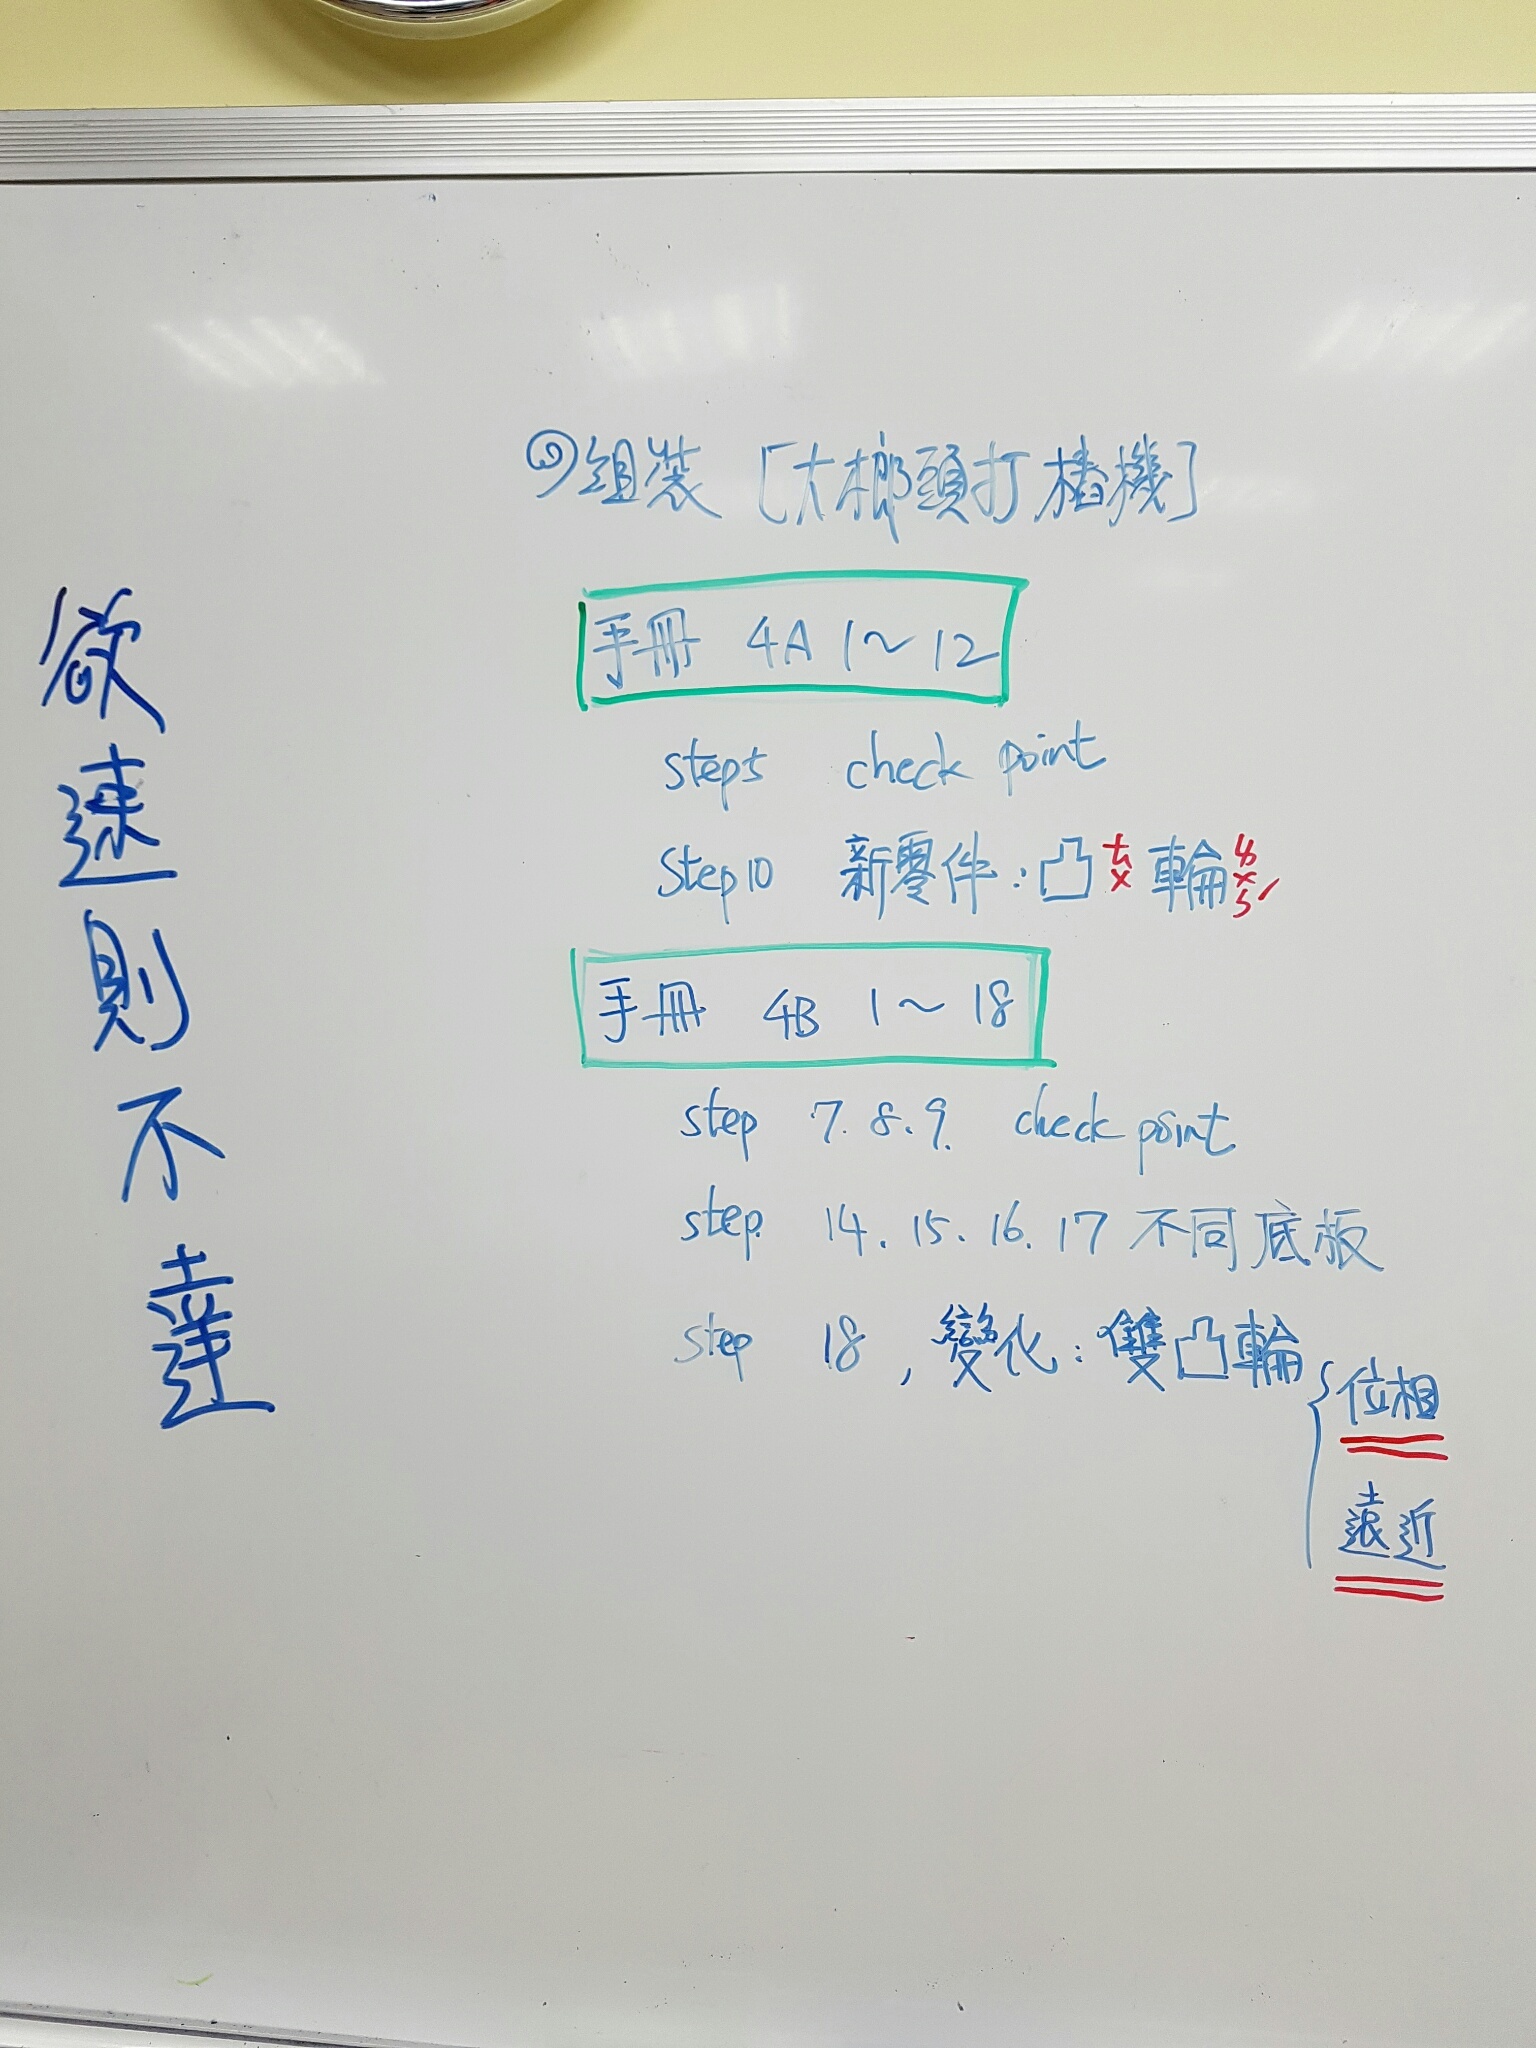 欲速則不達
◎組裝［大榔頭打樁機］
手冊 4A 1～12
step5 check point
Step10 新零件：凸ㄊㄨ輪ㄌㄨㄣˊ
手冊 4B 1～18
step 7.8.9. check point
step. 14.15.16.17 不同底板
step 18，變化：雙凸輪
位相
遠近